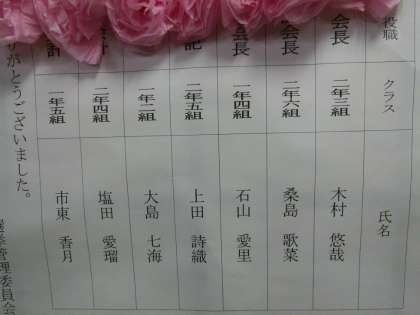 役職 クラス 氏名
会長 二年三組 木村 悠哉
会長 二年六組 桑島 歌菜
会長 一年四組 石山 愛里
記 二年五組 上田 詩織
一年二組 大島 七海
計 二年四組 塩田 愛瑠
計 一年五組 市東 香月
りがとうございました。
選挙管理委員会